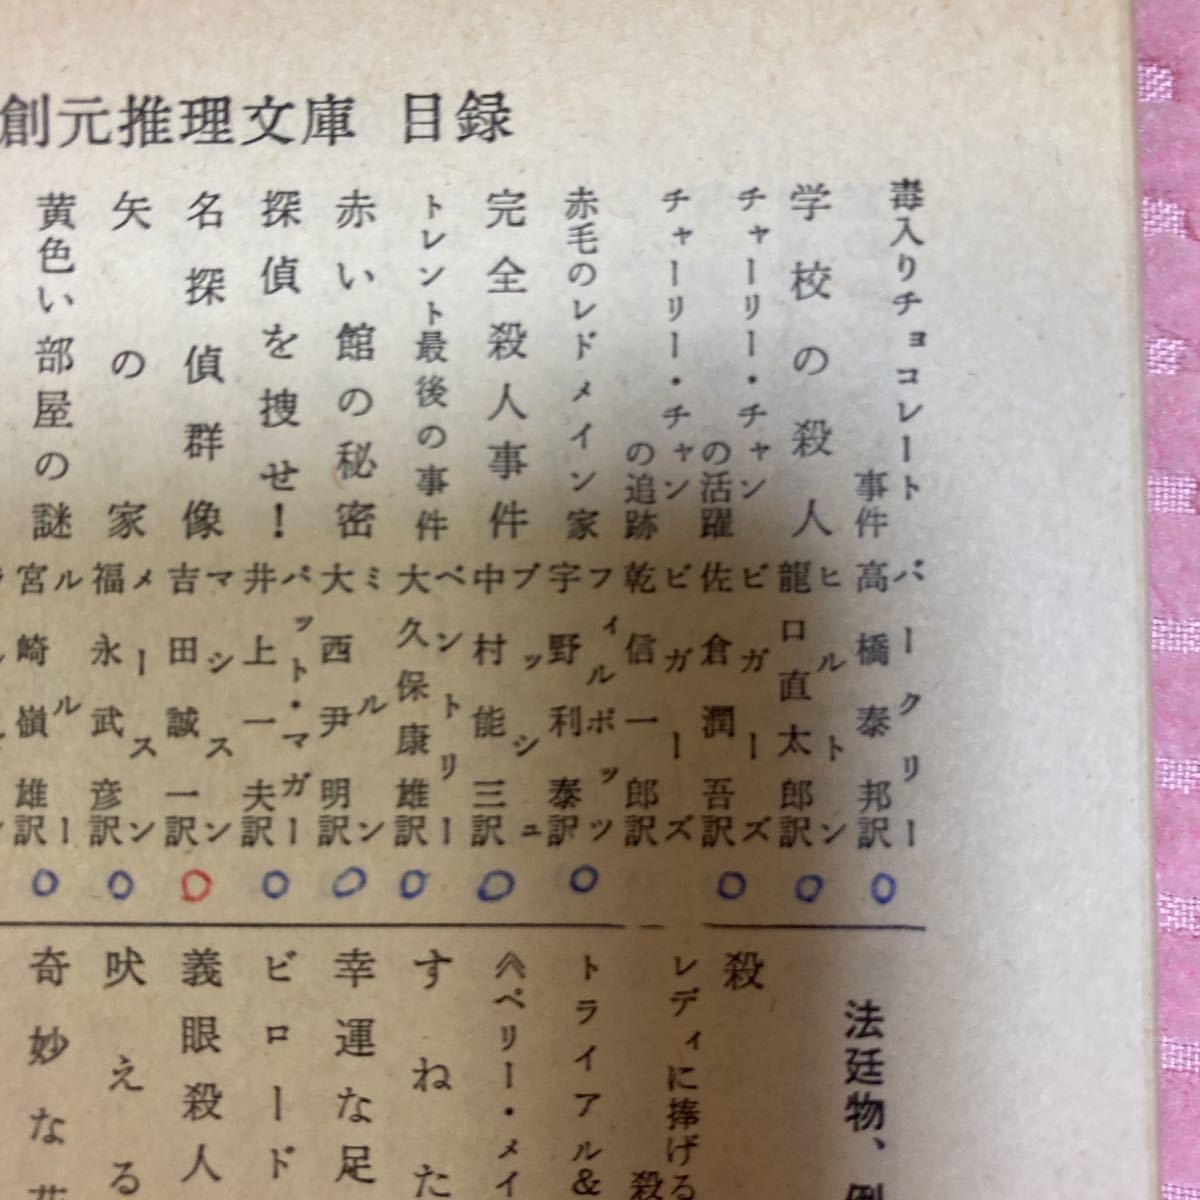 創元推理文庫 目録
毒入りチョコレート事件 バークリー 高橋泰邦訳
学校の殺人 ヒルトン 龍口直太郎訳
チャーリー・チャンの活躍 ビガーズ 佐倉潤吾訳
チャーリー・チャンの追跡 ビガーズ 乾信一郎訳
赤毛のレドメイン家 フィルポッツ 宇野利泰訳
完全殺人事件 ブッシュ 中村能三訳
トレント最後の事件 ベントリー 大久保康雄訳
赤い館の秘密 ミルン 大西尹明訳
探偵を捜せ! パット・マガー 井上一夫訳
名探偵群像 マシスン 吉田誠一訳
矢の家 メースン 福永武彦訳
黄色い部屋の謎 ルルー 宮崎嶺雄訳
法廷物、倒
殺
レディに捧げる殺
トライアル&
《ペリー・メイ
すねた
幸運な足
ビロード
義眼殺人
吠える
奇妙な花